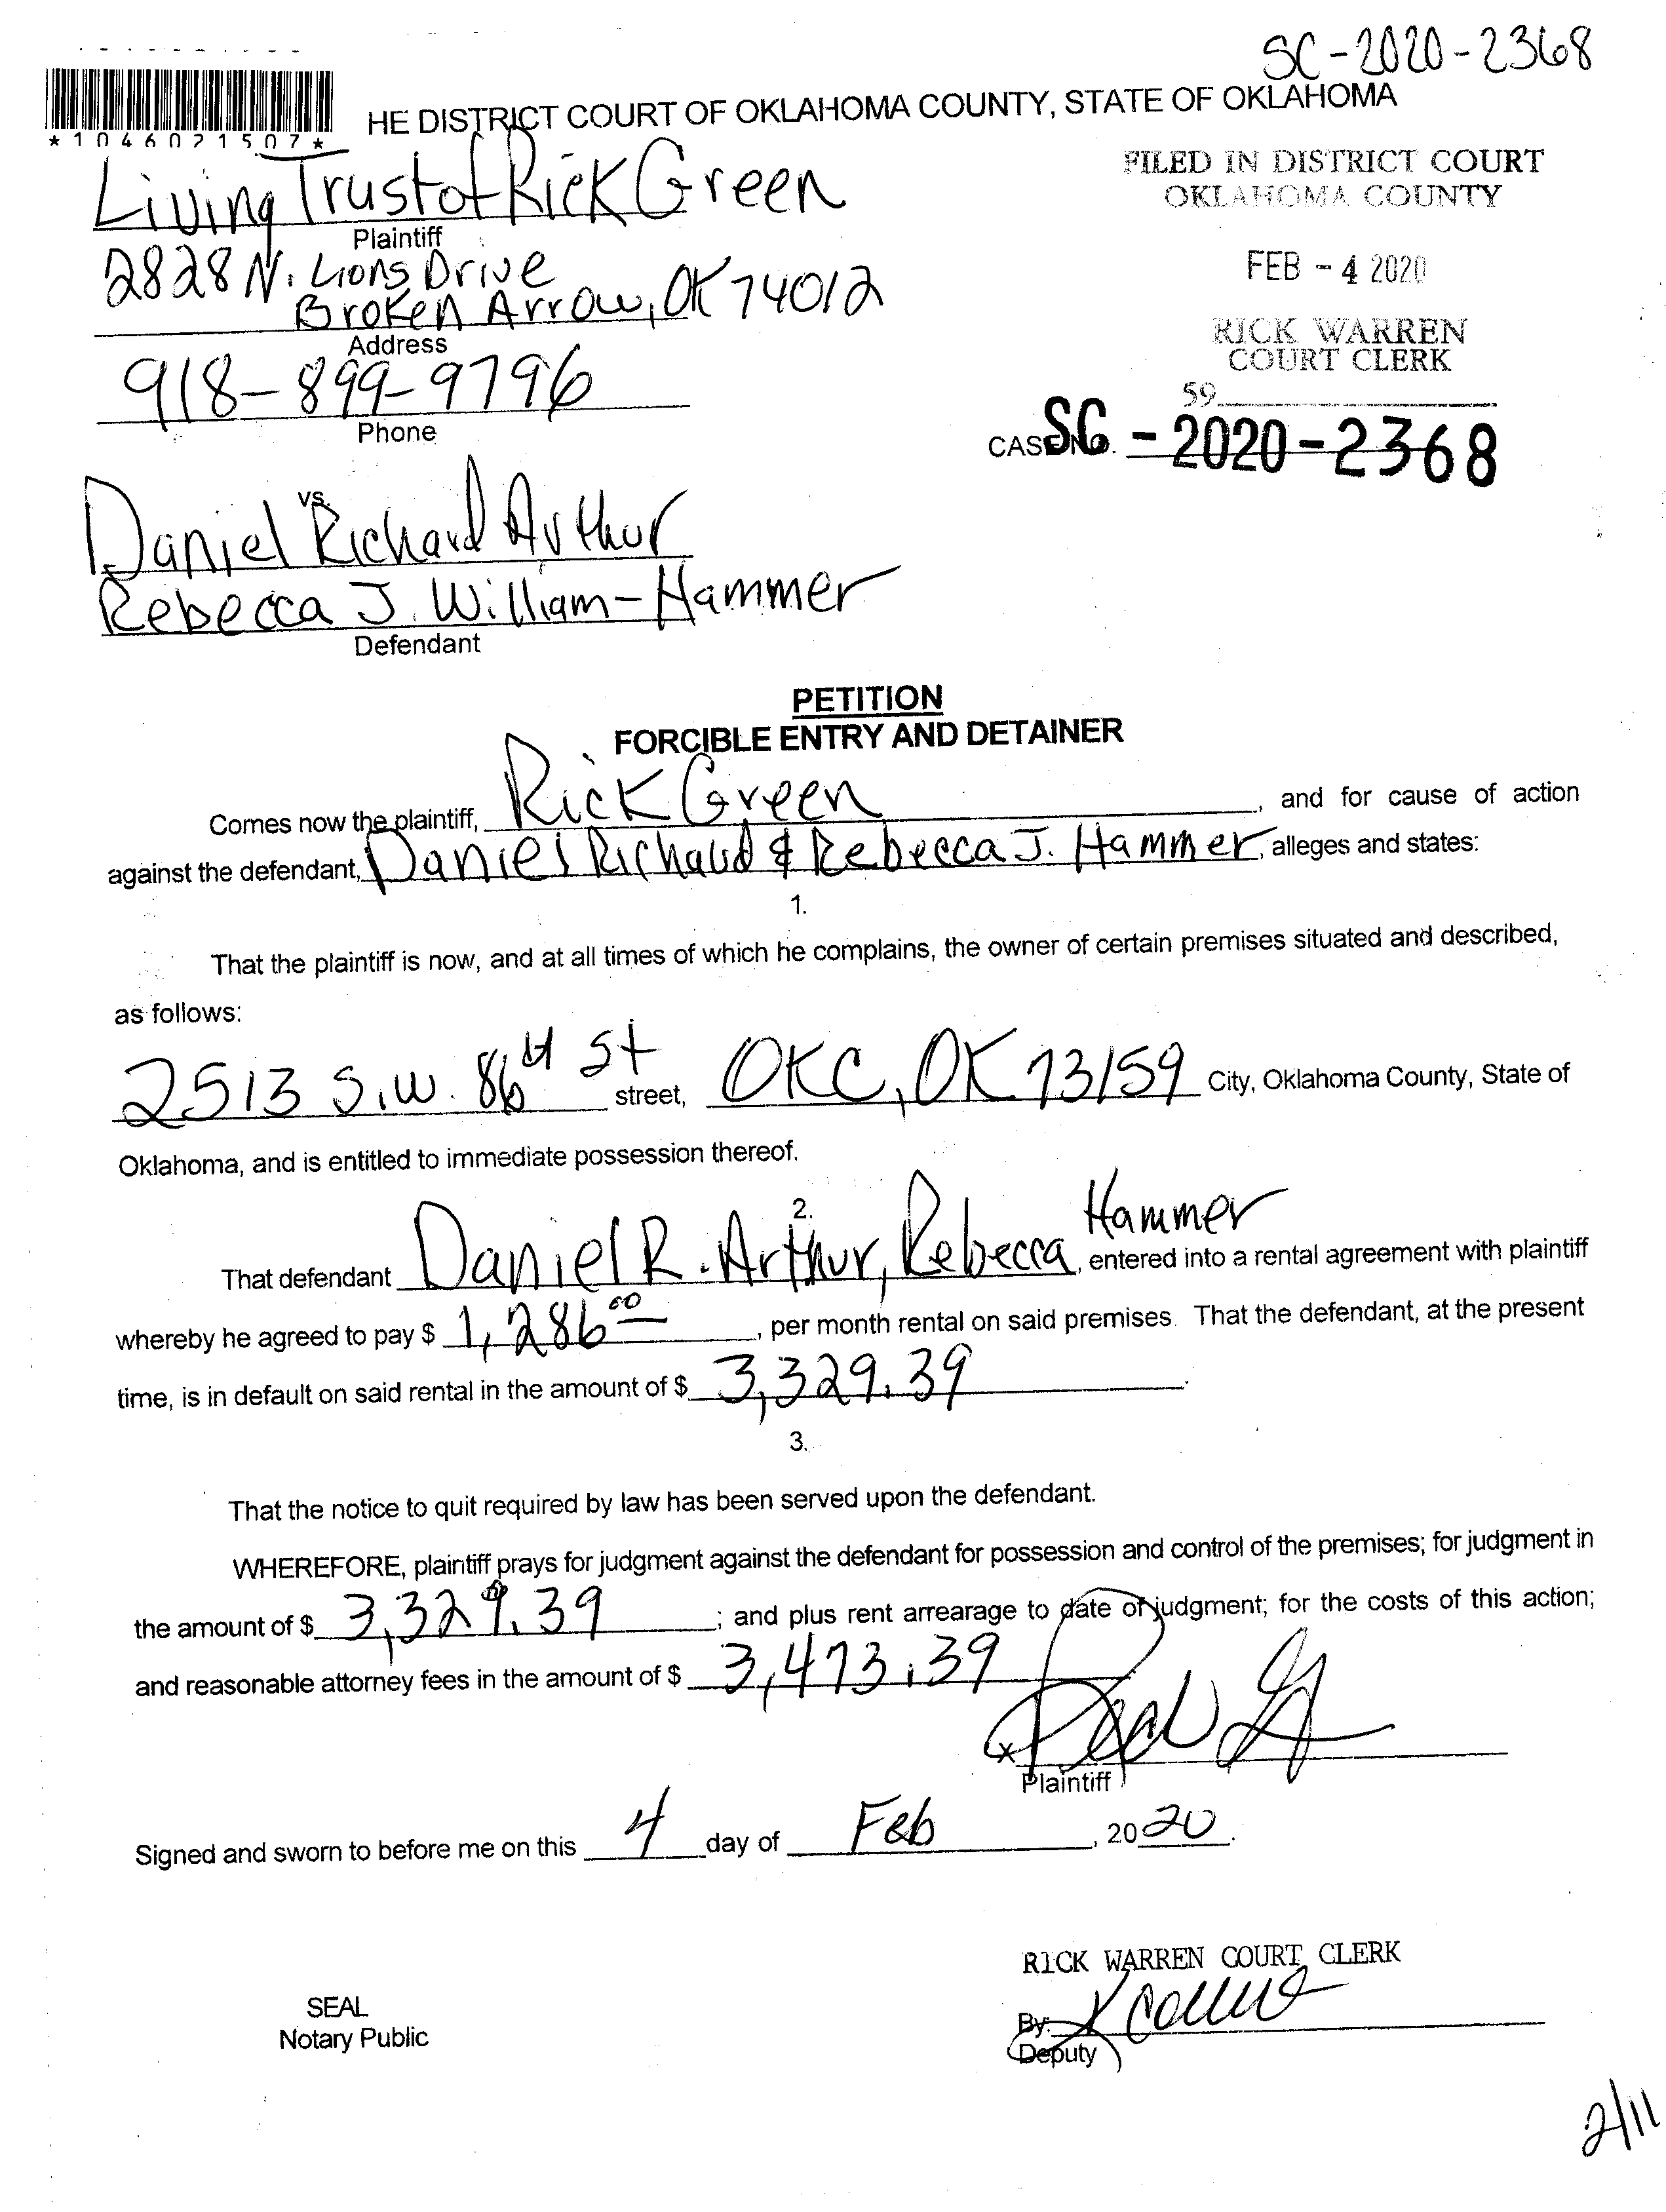 SC-2020-2368
*1046021507*
HE DISTRICT COURT OF OKLAHOMA COUNTY, STATE OF OKLAHOMA
FILED IN DISTRICT COURT
OKLAHOMA COUNTY
Living Trust of Rick Green
Plaintiff
2828 N. Lions Drive
Broken Arrow, OK 74012
Address
FEB - 4 2020
RICK WARREN
COURT CLERK
59
918-899-9796
Phone
CASE NO. SC - 2020-2368
vs.
Daniel Richard Arthur
Rebecca J. William-Hammer
Defendant
PETITION
FORCIBLE ENTRY AND DETAINER
Comes now the plaintiff, Rick Green, and for cause of action
against the defendant, Daniel Richard & Rebecca J. Hammer, alleges and states:
1.
That the plaintiff is now, and at all times of which he complains, the owner of certain premises situated and described,
as follows:
2513 S.W. 86th St street, OKC, OK 73159 City, Oklahoma County, State of
Oklahoma, and is entitled to immediate possession thereof.
2.
That defendant Daniel R. Arthur, Rebecca Hammer, entered into a rental agreement with plaintiff
whereby he agreed to pay $ 1,286 00, per month rental on said premises. That the defendant, at the present
time, is in default on said rental in the amount of $ 3,329.39.
3.
That the notice to quit required by law has been served upon the defendant.
WHEREFORE, plaintiff prays for judgment against the defendant for possession and control of the premises; for judgment in
the amount of $ 3,329.39; and plus rent arrearage to date of judgment; for the costs of this action;
and reasonable attorney fees in the amount of $ 3,473.39
x
Plaintiff
Signed and sworn to before me on this 4 day of Feb, 2020.
RICK WARREN COURT CLERK
SEAL
Notary Public
By:
Deputy
2/11